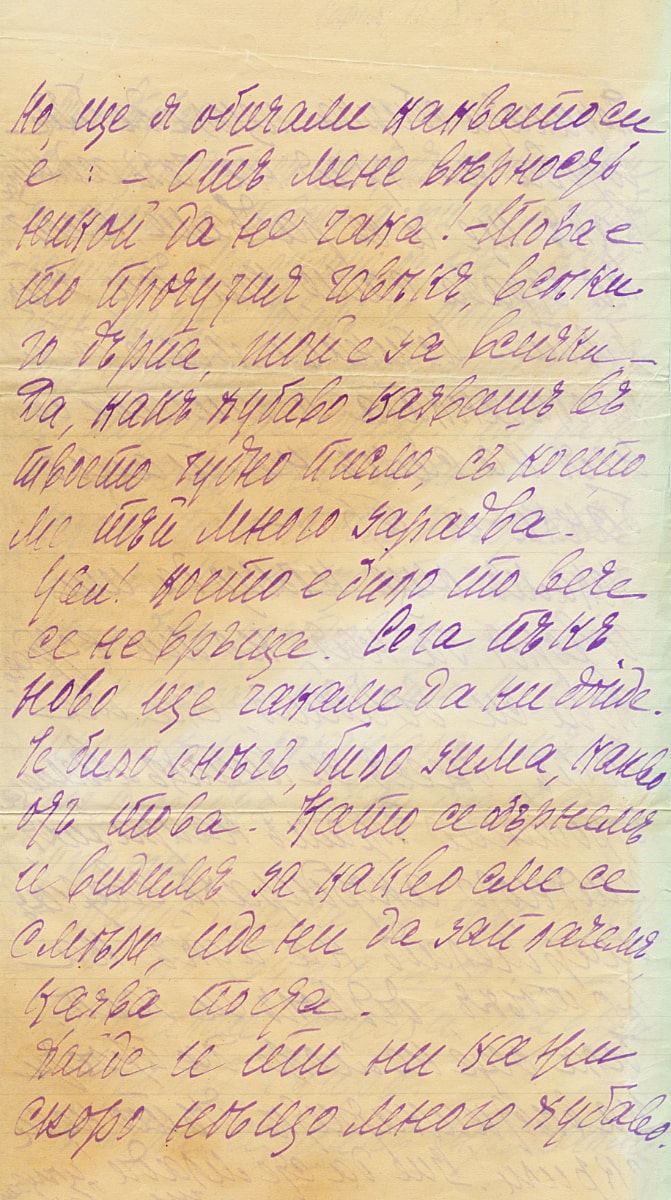 Но, ще я обичали каквато си
е : – Отъ мене вѣрность
никой да не чака! – Това е
то прочутия човѣкъ, всѣки
го дърпа, той е за всички –
Да, какъ хубаво казвашъ въ
твоето чудно писмо, съ което
ме тъй много зарадва.
Уви! което е било то вече
се не връща. Сега пъкъ
ново ще чакаме да ни дойде.
И било снѣгъ, било зима, какво
отъ това. Като се обърнемъ
и видимъ за какво сме се
смѣли, иде ни да заплачемъ,
казва поета.
Хайде и ти ни кажи
скоро нѣщо много хубаво.